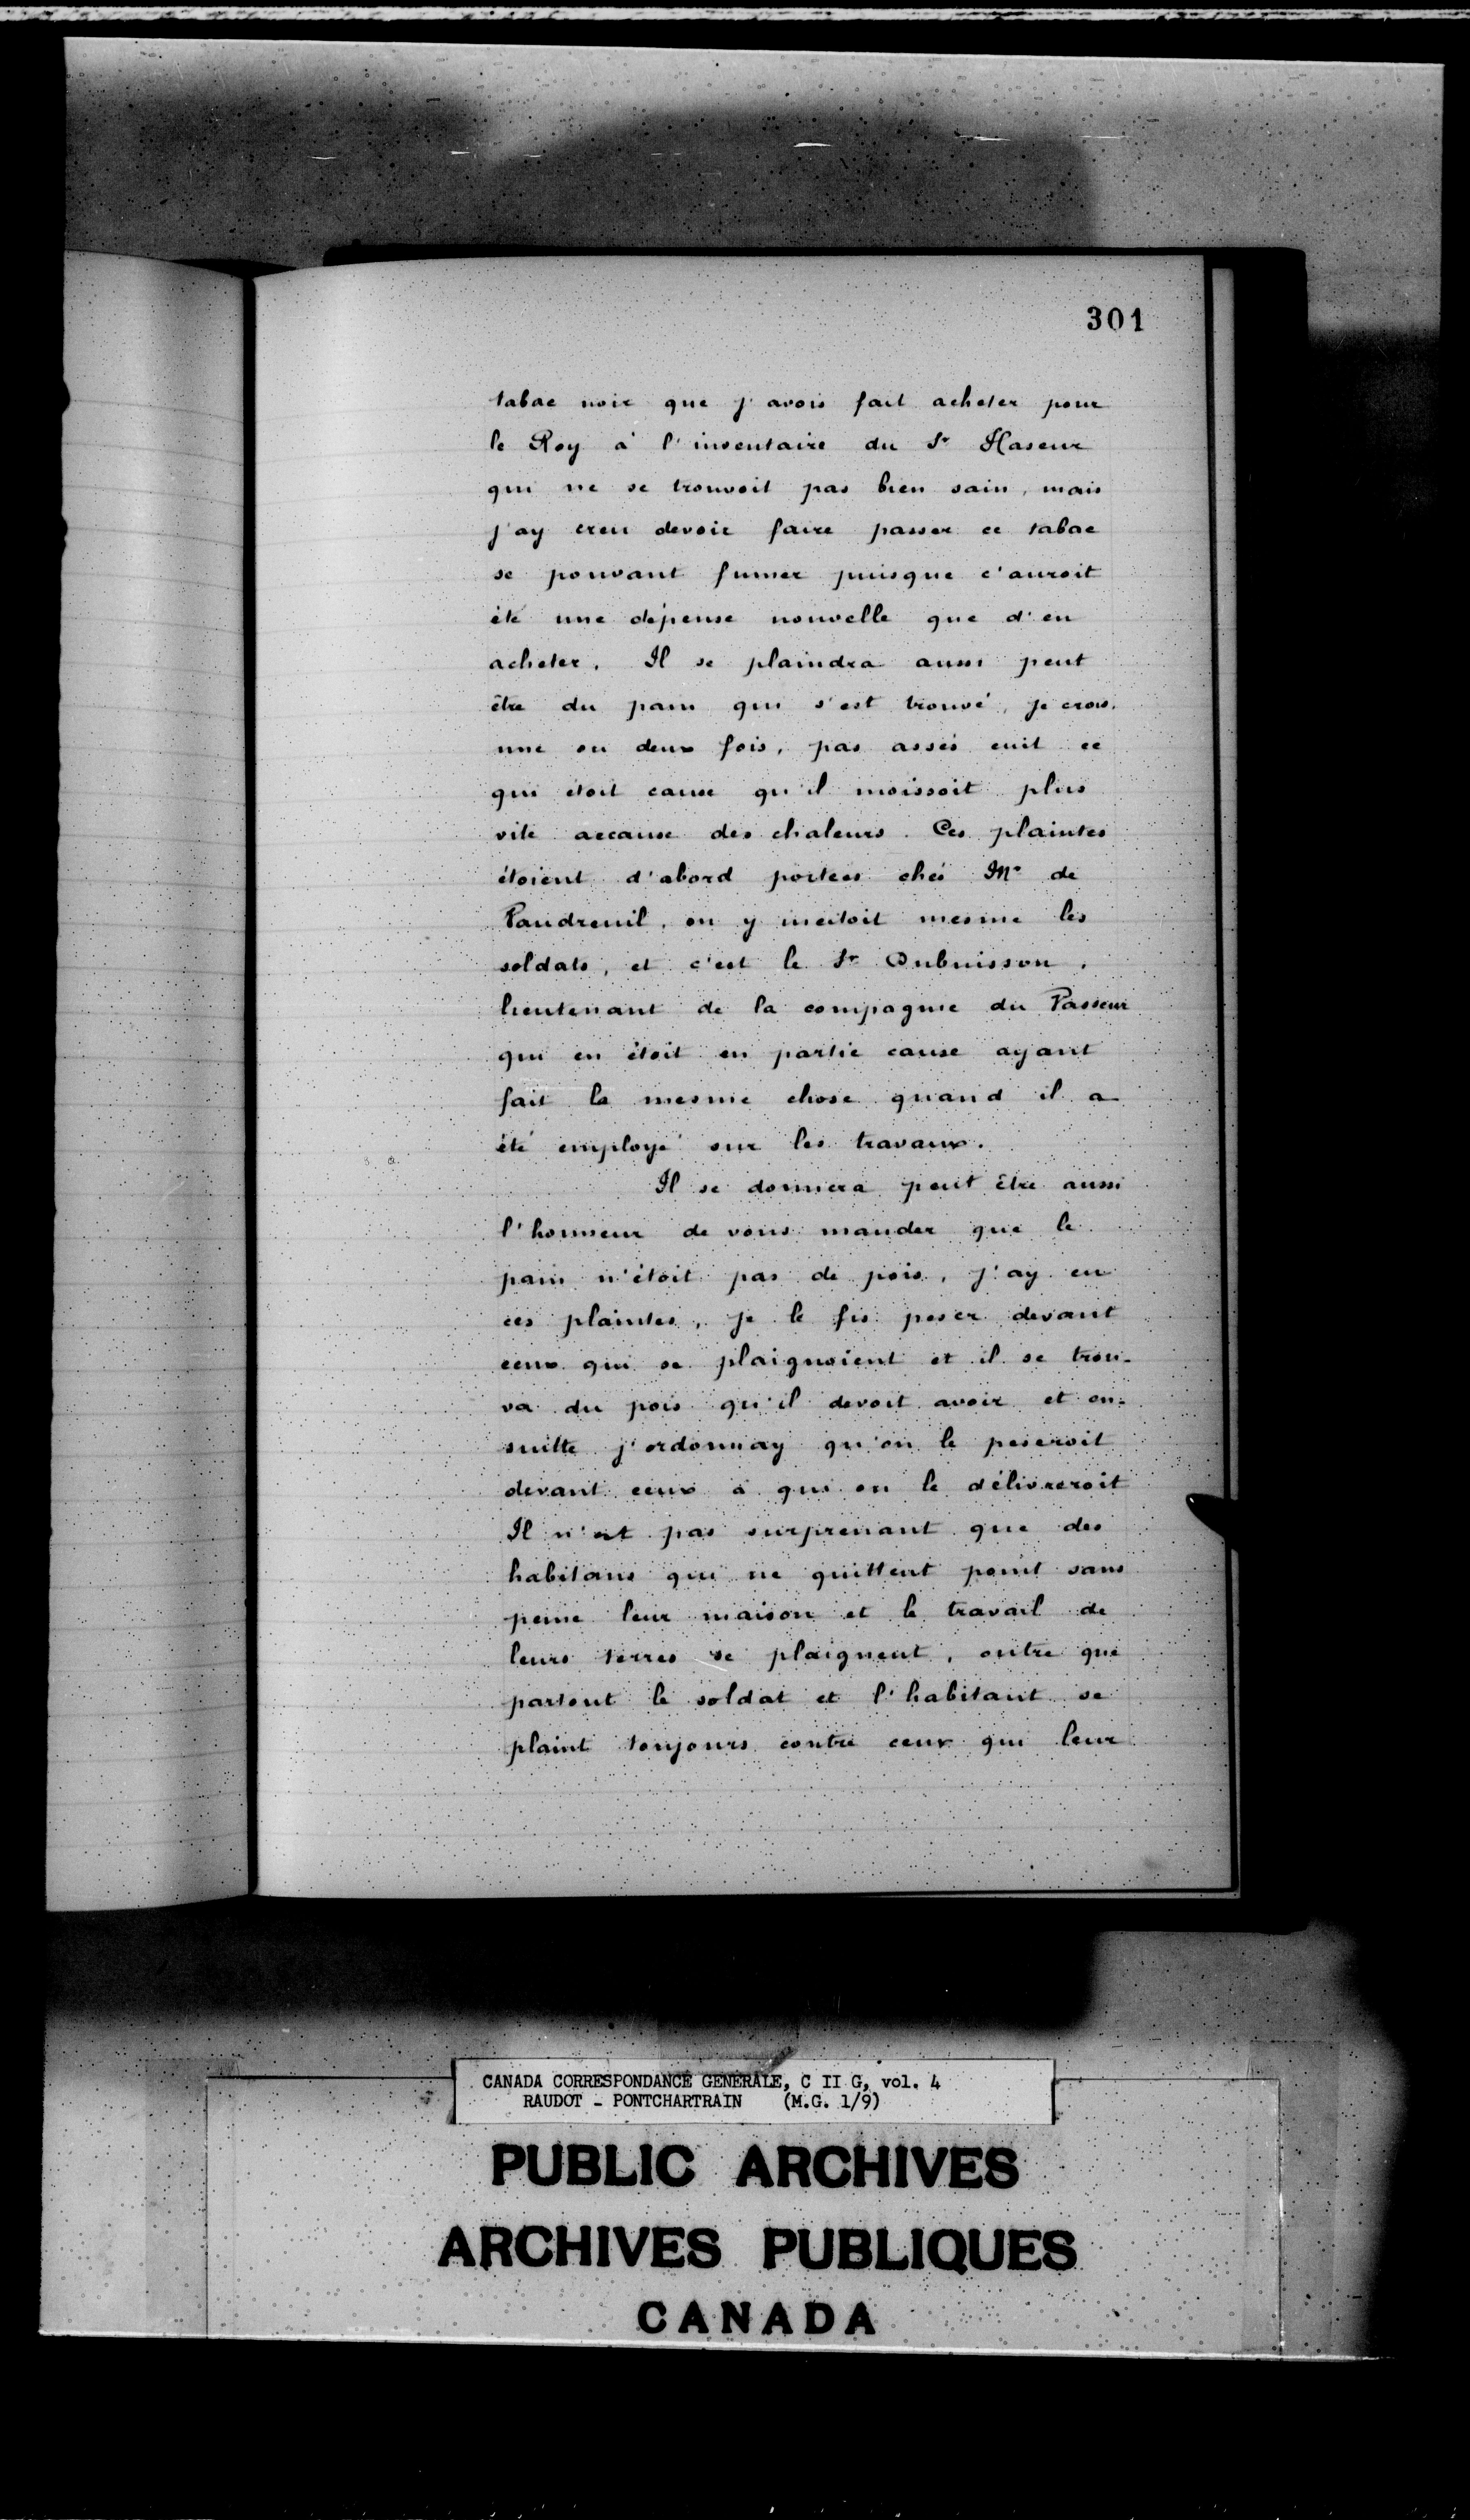 301
tabac noir que j'avois fait acheter pour
le Roy à l'inventaire du Sr Haseur
qui ne se trouvoit pas bien sain, mais
j'ay creu devoir faire passer ce tabac
se pouvant fumer puisque c'auroit
été une dépense nouvelle que d'en
acheter. Il se plaindra aussi peut
être du pain qui s'est trouvé, je crois,
une ou deux fois, pas assés cuit ce
qui étoit cause qu'il moissoit plus
vite accause des chaleurs. Ces plaintes
étoient d'abord portées chés Mr de
Vaudreuil, on y mettoit mesme les
soldats, et c'est le Sr Dubuisson,
lieutenant de la compagnie du Vasseur
qui en étoit en partie cause ayant
fait la mesme chose quand il a
été employé sur les travaux.
Il se donnera peut être aussi
l'honneur de vous mander que le
pain n'étoit pas de pois, j'ay eu
ces plaintes, je le fis peser devant
ceux qui se plaignoient et il se trou-
va du pois qu'il devoit avoir et en-
suitte j'ordonnay qu'on le peseroit
devant ceux à qui on le délivreroit
Il n'est pas surprenant que des
habitans qui ne quittent point sans
peine leur maison et le travail de
leurs terres se plaignent, outre que
partout le soldat et l'habitant se
plaint toujours contre ceux qui leur
CANADA CORRESPONDANCE GENERALE, C II G, vol. 4
RAUDOT - PONTCHARTRAIN (M.G. 1/9)
PUBLIC ARCHIVES
ARCHIVES PUBLIQUES
CANADA